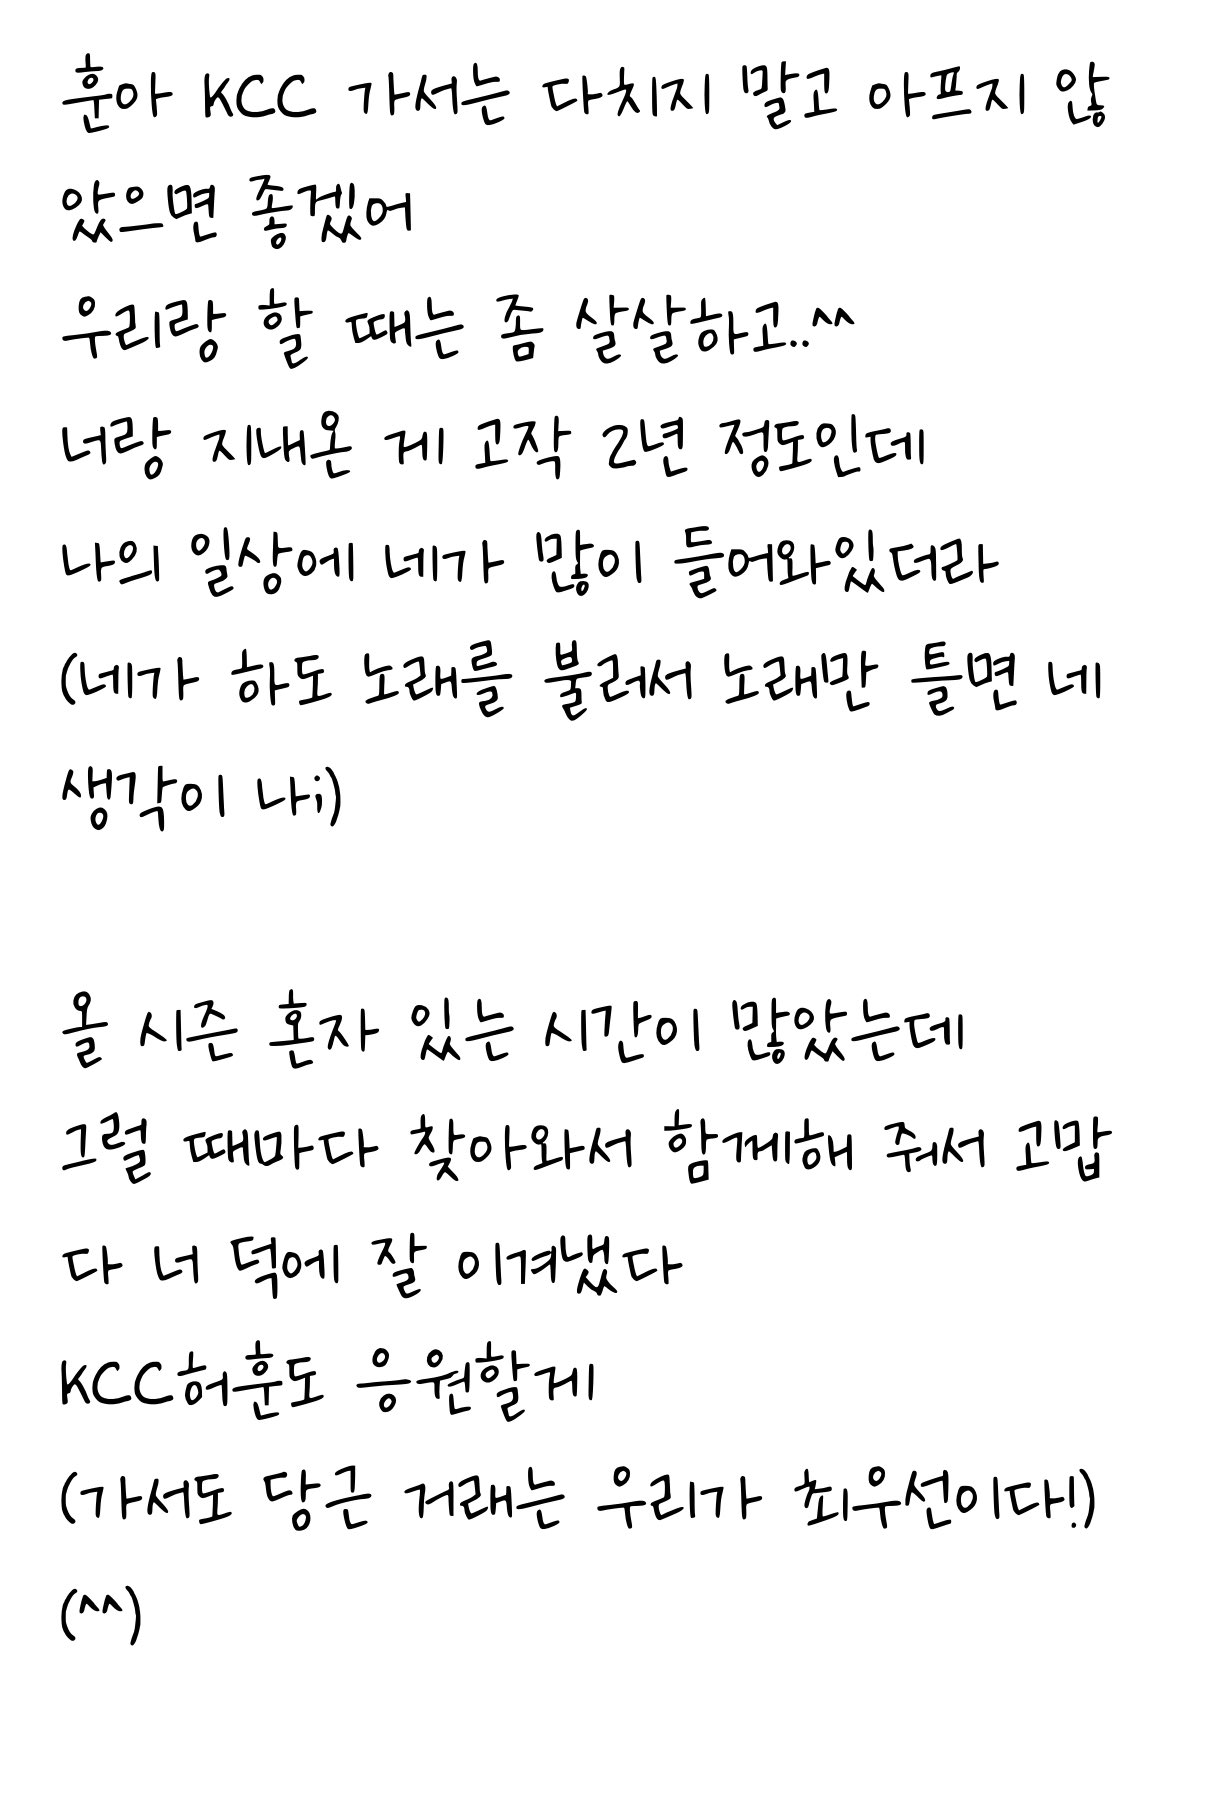 훈아 KCC 가서는 다치지 말고 아프지 않
았으면 좋겠어
우리랑 할 때는 좀 살살하고..^^
너랑 지내온 게 고작 2년 정도인데
나의 일상에 네가 많이 들어와있더라
(네가 하도 노래를 불러서 노래만 틀면 네
생각이 나;)
올 시즌 혼자 있는 시간이 많았는데
그럴 때마다 찾아와서 함께해 줘서 고맙
다 너 덕에 잘 이겨냈다
KCC허훈도 응원할게
(가서도 당근 거래는 우리가 최우선이다!)
(^^)